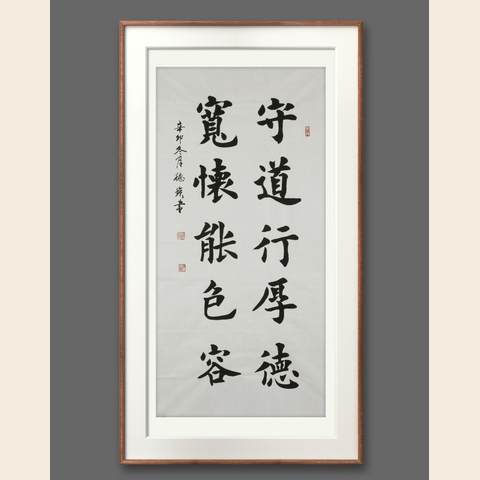 守道行厚德
寬懷能色容
辛卯冬月德書